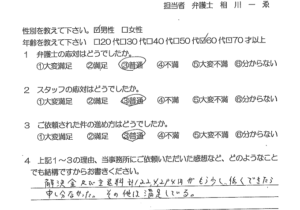 担当者 弁護士 相川一ゑ
性別を教えて下さい。☑男性 □女性
年齢を教えて下さい □20代□30代□40代□50代☑60代□70才以上
1 弁護士の応対はどうでしたか。
①大変満足 ②満足 ③普通 ④不満 ⑤大変不満 ⑥分からない
2 スタッフの応対はどうでしたか。
①大変満足 ②満足 ③普通 ④不満 ⑤大変不満 ⑥分からない
3 ご依頼された件の進め方はどうでしたか。
①大変満足 ②満足 ③普通 ④不満 ⑤大変不満 ⑥分からない
4 上記1~3の理由、当事務所にご依頼いただいた感想など、どのようなこと
でも結構ですからお書きください。
解決金 もう少し低くできたら
申し分なかった。その他は満足している。